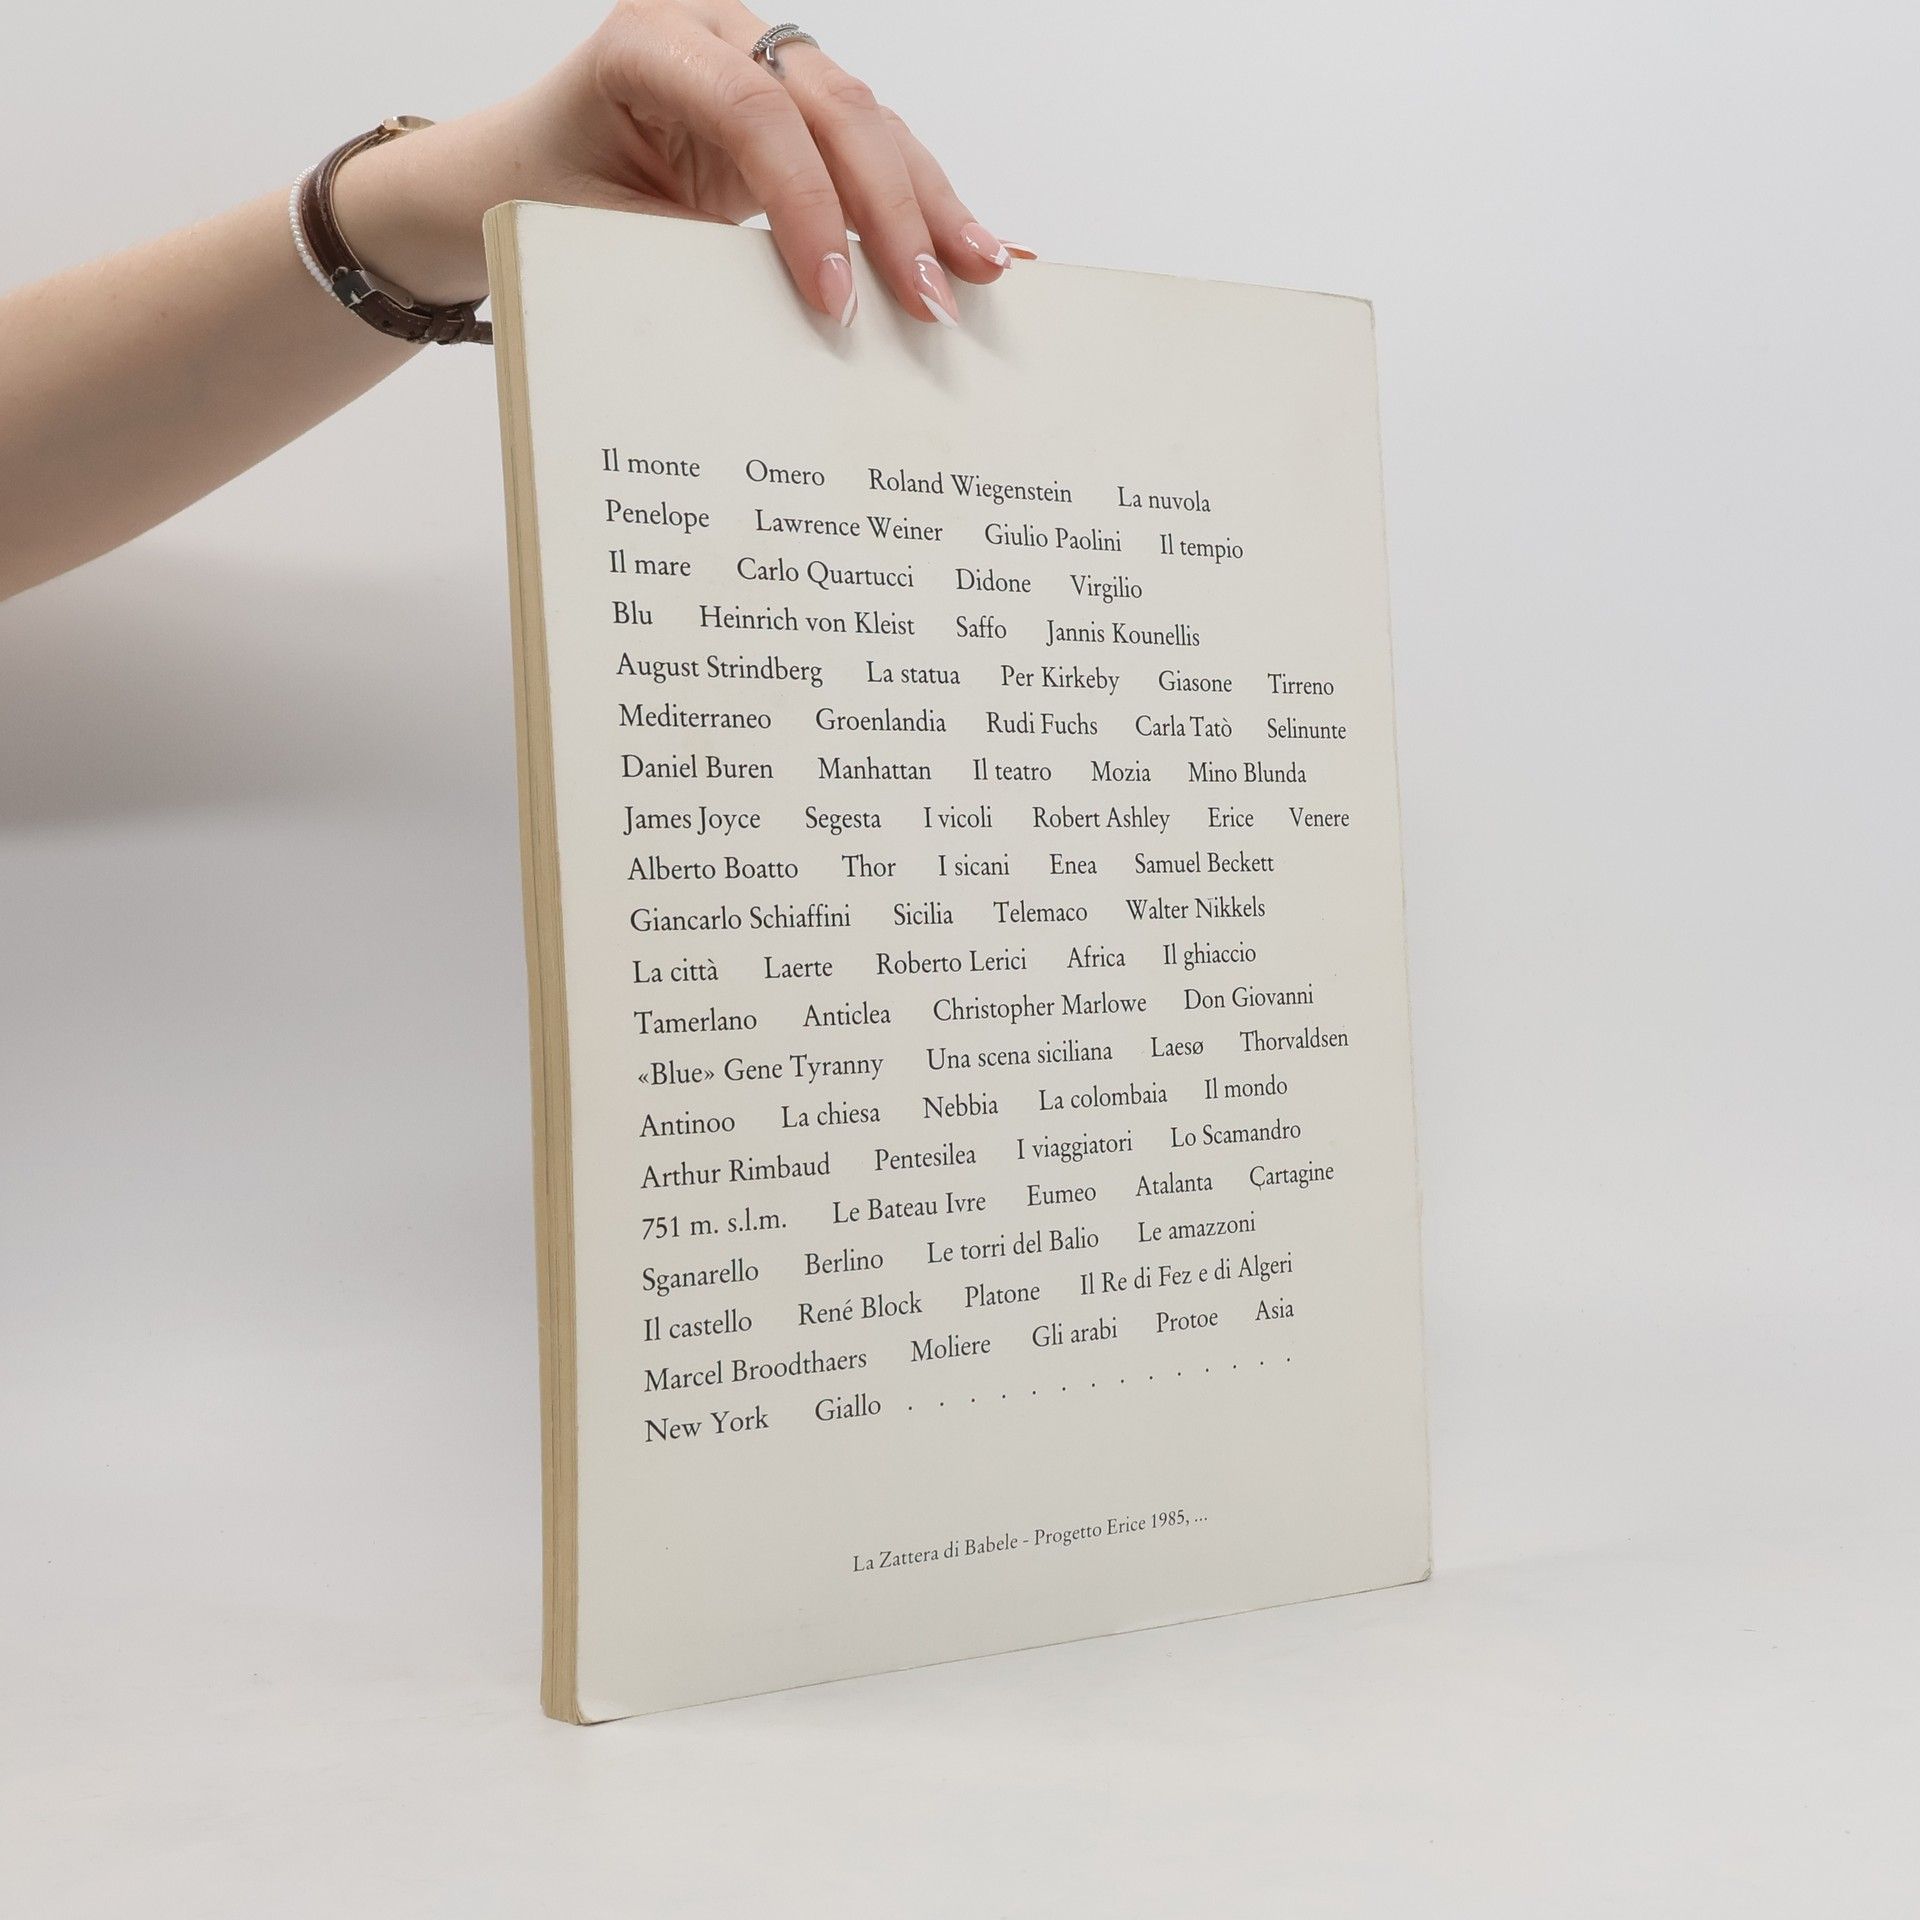 Il monte Omero Roland Wiegenstein La nuvola
Penelope Lawrence Weiner Giulio Paolini Il tempio
Il mare Carlo Quartucci Didone Virgilio
Blu Heinrich von Kleist Saffo Jannis Kounellis
August Strindberg La statua Per Kirkeby Giasone Tirreno
Mediterraneo Groenlandia Rudi Fuchs Carla Tatò Selinunte
Daniel Buren Manhattan Il teatro Mozia Mino Blunda
James Joyce Segesta I vicoli Robert Ashley Erice Venere
Alberto Boatto Thor I sicani Enea Samuel Beckett
Giancarlo Schiaffini Sicilia Telemaco Walter Nikkels
La città Laerte Roberto Lerici Africa Il ghiaccio
Tamerlano Anticlea Christopher Marlowe Don Giovanni
«Blue» Gene Tyranny Una scena siciliana Laesø Thorvaldsen
Antinoo La chiesa Nebbia La colombaia Il mondo
Arthur Rimbaud Pentesilea I viaggiatori Lo Scamandro
751 m. s.l.m. Le Bateau Ivre Eumeo Atalanta Cartagine
Sganarello Berlino Le torri del Balio Le amazzoni
Il castello René Block Platone Il Re di Fez e di Algeri
Marcel Broodthaers Moliere Gli arabi Protoe Asia
New York Giallo . . . . . . . . . . . . . .
La Zattera di Babele - Progetto Erice 1985, ...